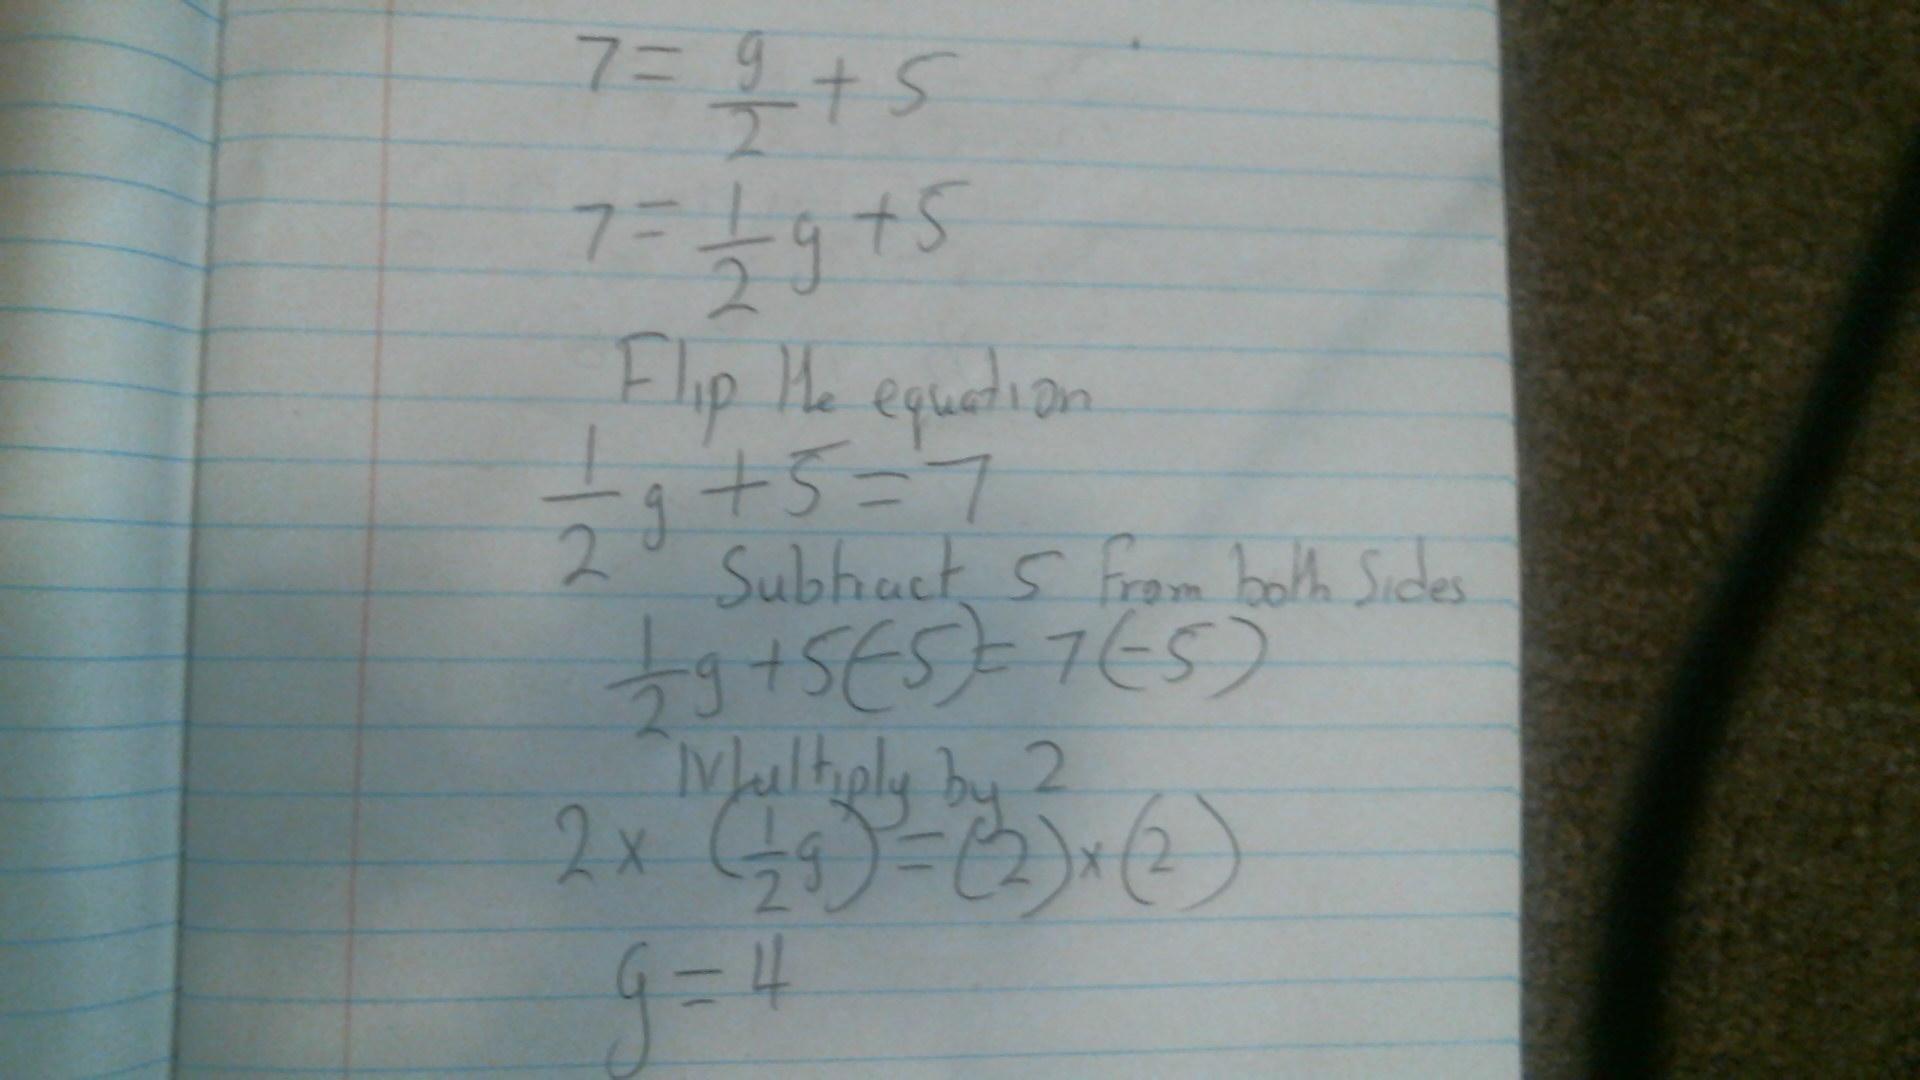 7 = g/2 + 5
7 = 1/2 g + 5
Flip the equation
1/2 g + 5 = 7
Subtract 5 from both sides
1/2 g + 5(-5) = 7(-5)
Multiply by 2
2 × (1/2 g) = (2) × (2)
g = 4